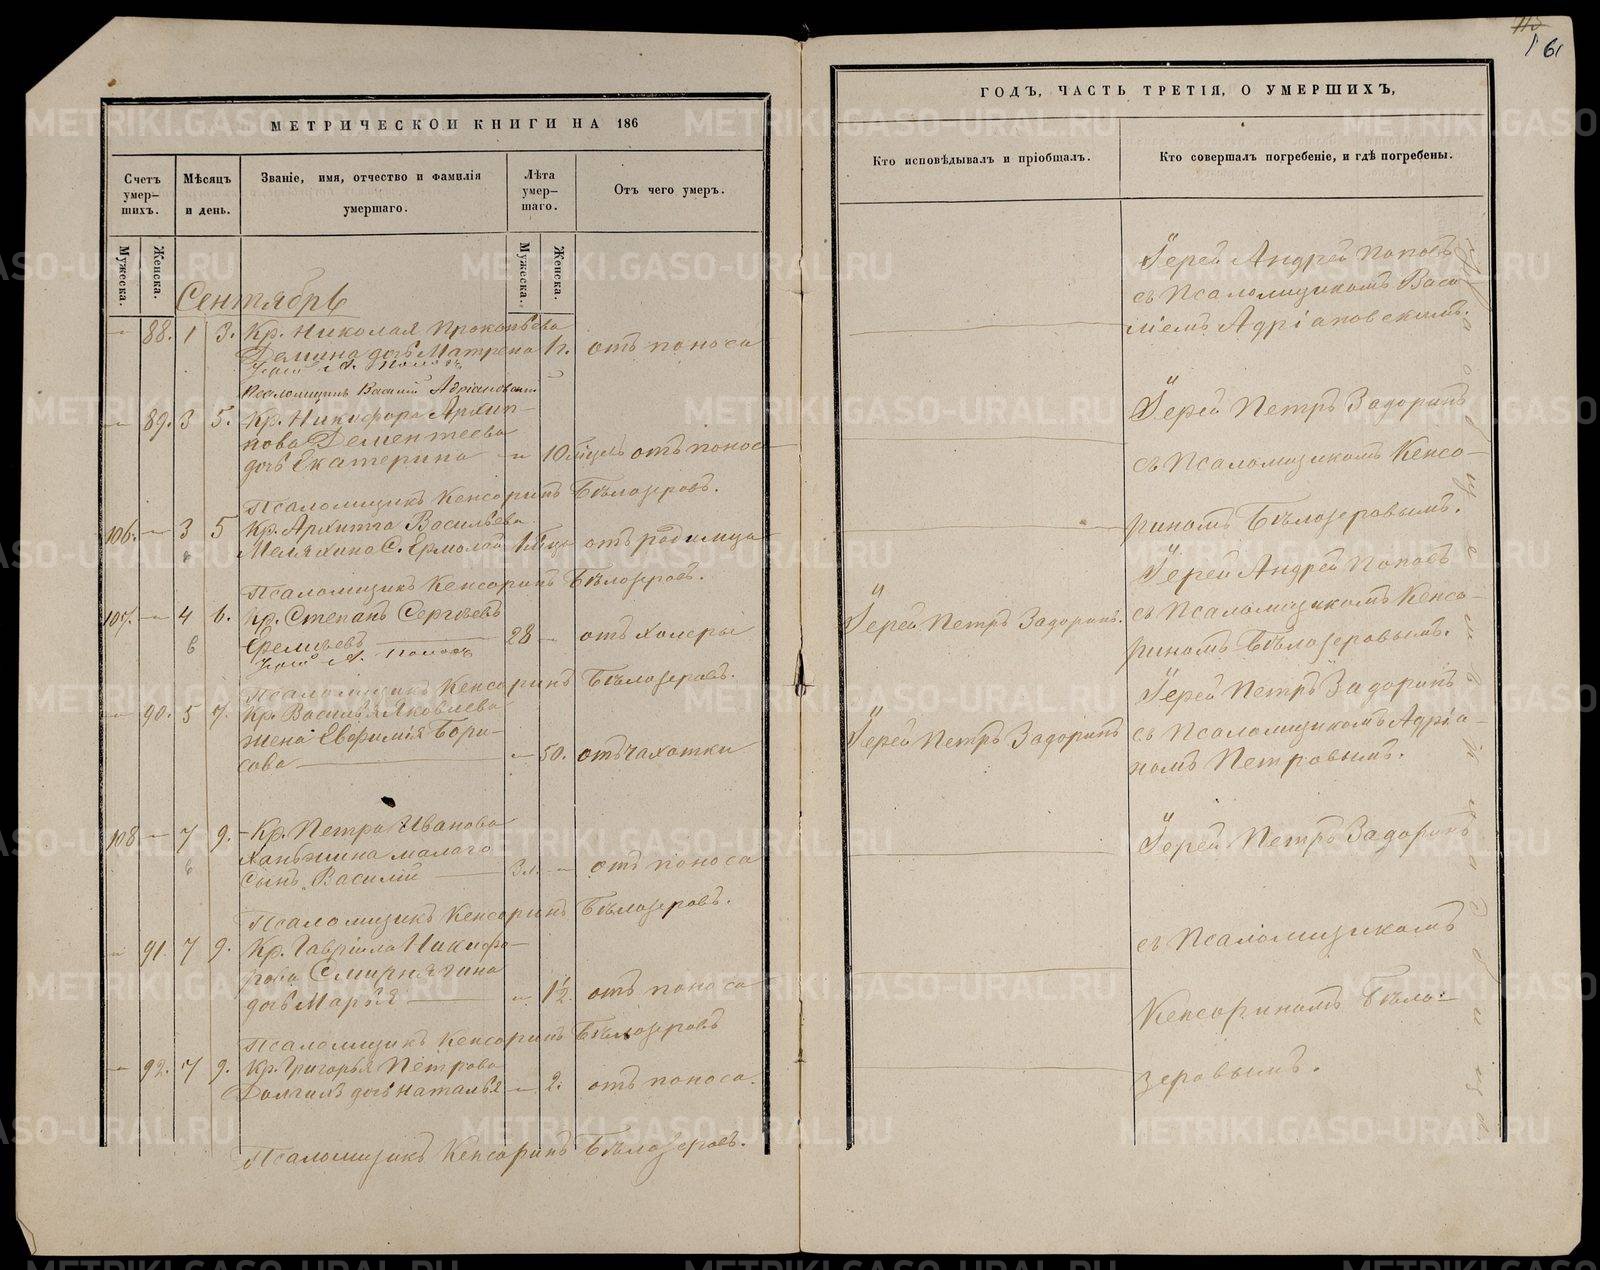 МЕТРИЧЕСКОЙ КНИГИ НА 186
Счетъ умер-
шихъ.
Мѣсяцъ
и день.
Званіе, имя, отчество и фамилія
умершаго.
Лѣта
умер-
шаго.
Отъ чего умеръ.
Мужеска.
Женска.
Мужеска.
Женска.
Сентябрь
88. 1 3. Кр. Николая Прокопьева
Демина дочь Матрена 1 г. отъ поноса
Псаломщикъ Василій Адріановскій
89. 3 5. Кр. Никифора Архип-
пова Дементьева
дочь Екатерина 10 мѣсц. отъ понос
Псаломщикъ Кенсоринъ Бѣлозеровъ.
106. 3 5 Кр. Архиппа Васильева
Маляхина С. Ермолай 1 м-ца отъ родимца
6
Псаломщикъ Кенсоринъ Бѣлозеровъ.
107. 4 6. Кр. Степанъ Сергѣевъ
6 Еремѣевъ 28 отъ холеры
Псаломщикъ Кенсоринъ Бѣлозеровъ.
90. 5 7. Кр. Василья Яковлева
жена Евфимія Бори-
сова 50. отъ чахотки
108 7 9. Кр. Петра Иванова
6 Ханжина малаго
сынъ Василій 3 л. отъ поноса
Псаломщикъ Кенсоринъ Бѣлозеровъ.
91. 7 9. Кр. Гавріила Никифо-
рова Смирнягина
дочь Марья 1½. отъ поноса
Псаломщикъ Кенсоринъ Бѣлозеровъ
92. 7 9. Кр. Григорья Петрова
дочь Наталья 2. отъ поноса.
Псаломщикъ Кенсоринъ Бѣлозеровъ.
115
161
ГОДЪ, ЧАСТЬ ТРЕТІЯ, О УМЕРШИХЪ,
Кто исповѣдывалъ и пріобщалъ.
Кто совершалъ погребеніе, и гдѣ погребены.
Іерей Андрей Поповъ
съ Псаломщикомъ Васи
ліемъ Адріановскимъ.
Іерей Петръ Задоринъ
съ Псаломщикомъ Кенсо-
риномъ Бѣлозеровымъ.
Іерей Андрей Поповъ
Іерей Петръ Задоринъ. съ Псаломщикомъ Кенсо-
риномъ Бѣлозеровымъ.
Іерей Петръ Задоринъ
Іерей Петръ Задоринъ съ Псаломщикомъ Адріа-
номъ Петровымъ.
Іерей Петръ Задоринъ
съ Псаломщикомъ
Кенсориномъ Бѣло-
зеровымъ.
METRIKI.GASO-URAL.RU